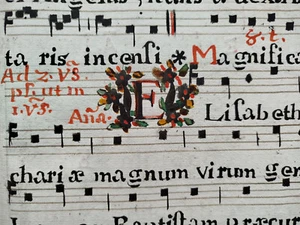 ta ris incensi * Magnific
8. t.
Ad 2. Vs.
ps. ut in
1. Vs. Aña. E
Lisabeth
chariæ magnum virum gen
Baptistam præcur